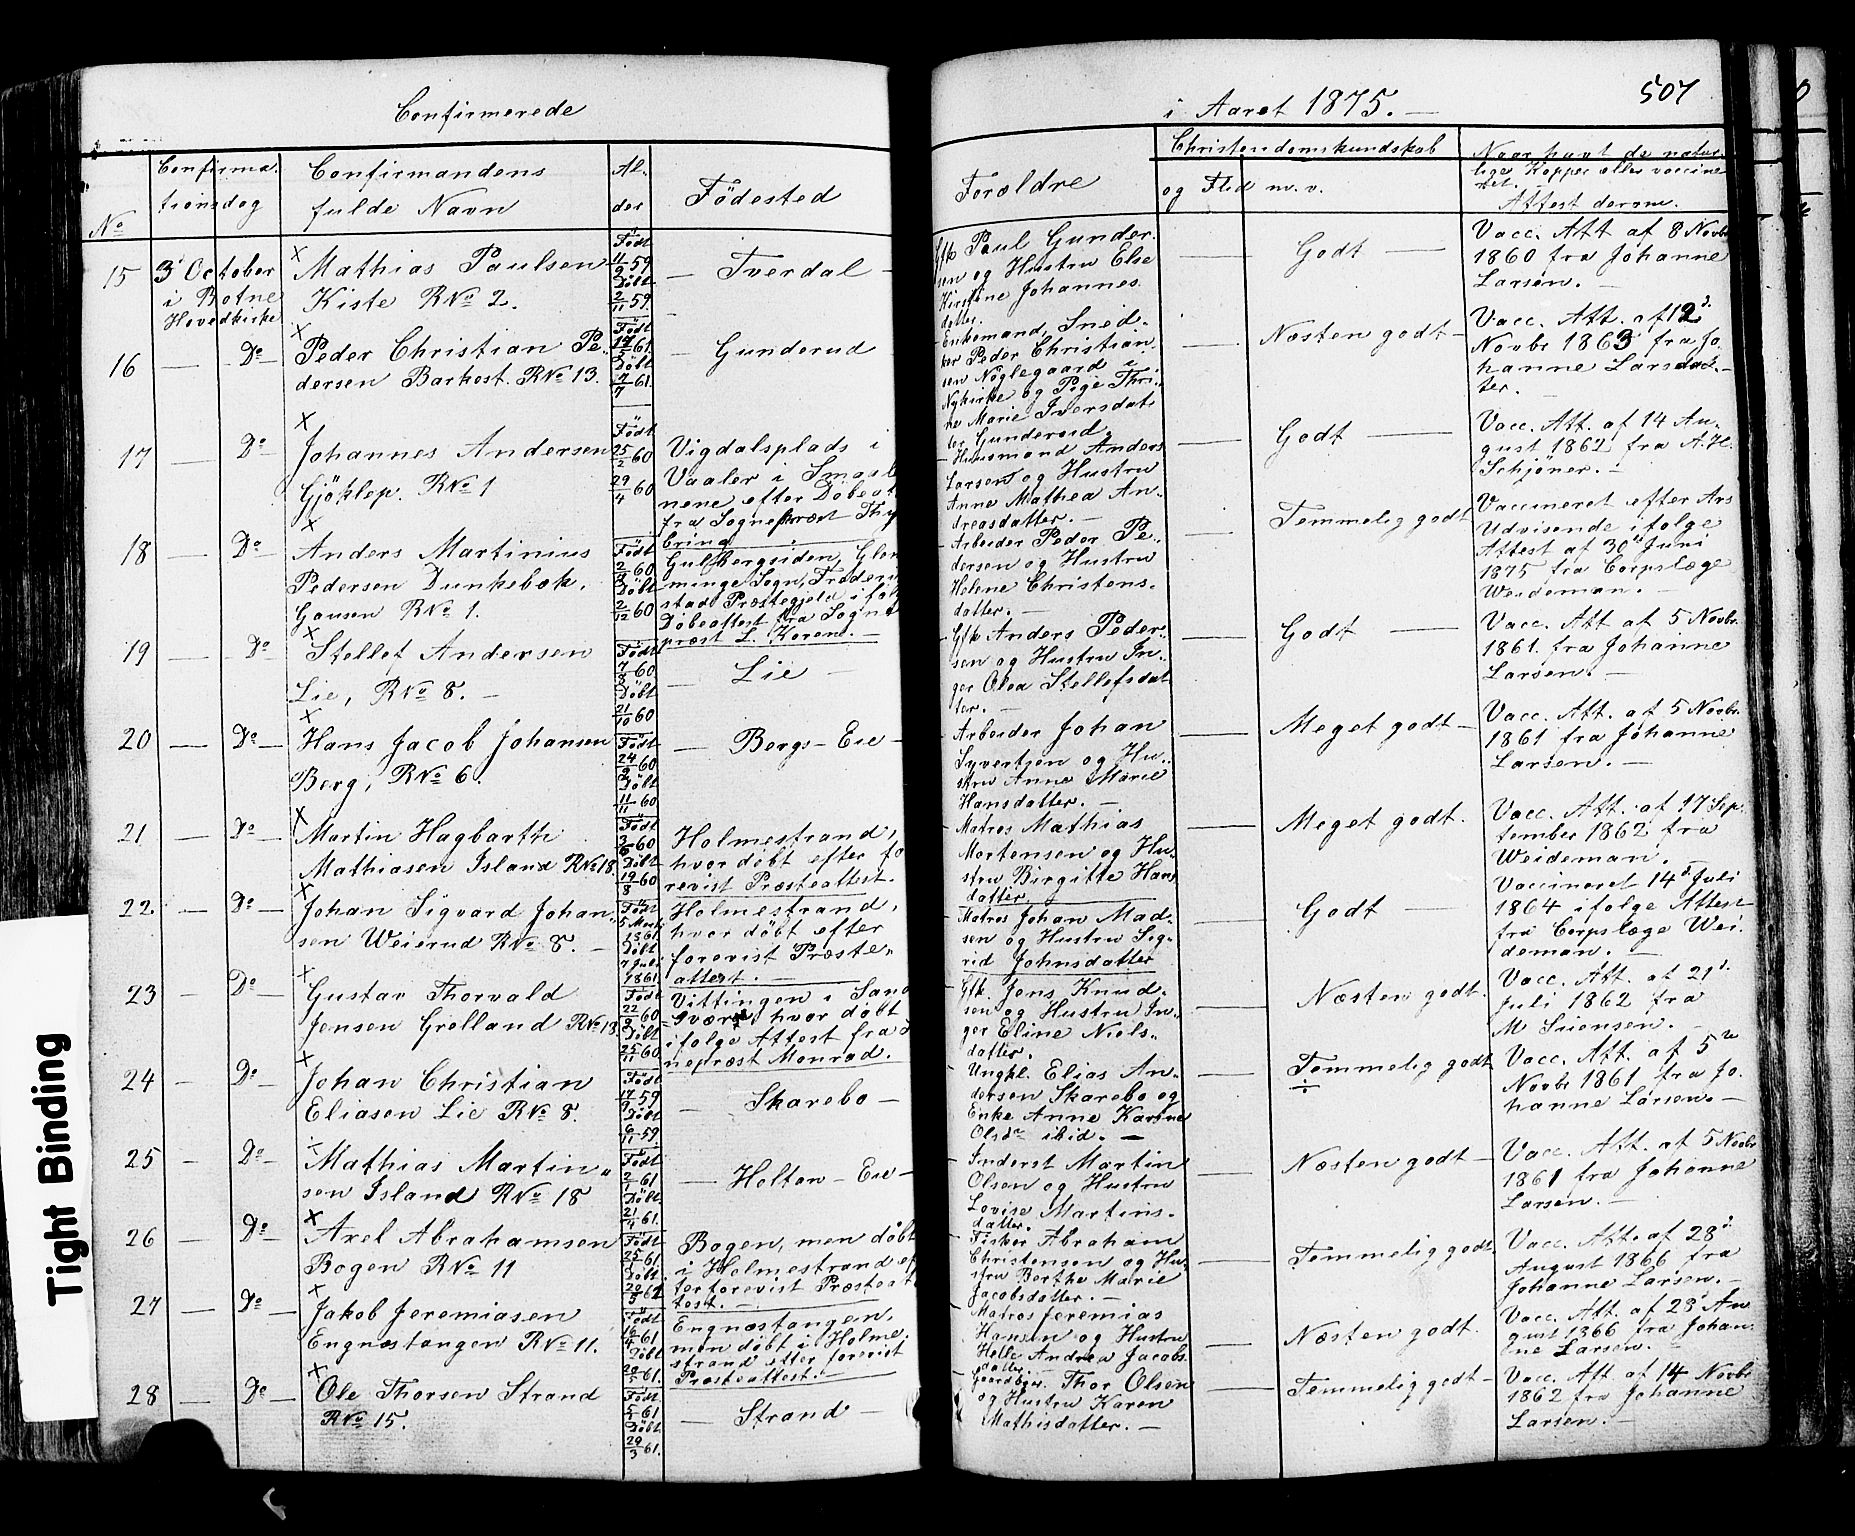 Confirmerede
i Aaret 1875. —
507
No
Confirma-
tionsdag
Confirmandens
fulde Navn
Al-
der
Födested
Forældre
Christendomskundskab
og Flid m. v.
Naar havt de natur-
lige Kopper eller vaccine-
ret.
Attest derom.
15
3' October
i Botne
Hovedkirke
×
Mathias Paulsen
Kiste RNo 2.
Födt
11/9 59
Döbt
2/11 59.
— Tverdal —
Gfb Paul Gunder-
sen og Hustru Else
Kirstine Johannes-
datter.
— Godt —
Vacc. Att af 8 Novbr
1860 fra Johanne
Larsen. —
16 — Do —
×
Peder Christian Pe-
dersen Barkost. RNo 13.
Födt
61.
Döbt
7/7 61.
— Gunderud
Enkemand, Sned-
ker Peder Christian-
sen Nöglegaard i
Nykirke og Pige Thri-
ne Marie Iversdat-
ter Gunderud.
— Næsten godt —
Vacc. Att. af 12'
Novbr 1863 fra Jo-
hanne Larsdat-
ter. —
17 — Do —
×
Johannes Andersen
Gjöklep. RNo 1
Födt
25/2 60
29/4 60
Vigdalsplads i
Vaaler i Smaale-
nene efter Döbeatt.
fra Sognepræst Thy-
bring
— Husmand Anders
Larsen og Hustru
Anne Mathea An-
dreasdatter. —
— Godt —
Vacc. Att. af 14 Au-
gust 1862 fra A. H.
Schjöner. —
18 — Do —
×
Anders Martinius
Pedersen Dunkebæk,
Gausen RNo 1.
Födt
60
Döbt
2/12 60
Gulbergsiden, Glem-
minge Sogn, Frederik-
stad Præstegjeld ifölge
Döbeattest fra Sogne-
præst L. Koren. —
Arbeider Peder Pe-
dersen og Hustru
Helene Christens-
datter. —
— Temmelig godt
Vaccineret efter Ars
Udvisende ifolge
Attest af 30' Juni
1875 fra Corpslæge
Weideman. —
19 — Do —
×
Stellef Andersen
Lie, RNo 8. —
Födt
7/8 60
Döbt
21/10 60
— Lie —
Gfb Anders Peder-
sen og Hustru In-
ger Olea Stellefsdat-
ter. —
— Godt —
Vacc. Att af 5 Novbr.
1861. fra Johanne
Larsen. —
20 — Do —
×
Hans Jacob Johansen
Berg, RNo 6.
Födt
24/9 60
Döbt
11/11 60
— Bergs-Eie —
Arbeider Johan
Syvertsen og Hu-
stru Anne Marie
Hansdatter. —
— Meget godt —
Vacc. Att. af 5 Novbr.
1861 fra Johanne
Larsen. —
21 — Do —
×
Martin Hagbarth
Mathiasen Island RNo 18.
Födt
3/6 60
Döbt
19/8 60
Holmestrand,
hvor döbt efter fo-
revist Præsteattest.
Matros Mathias
Mortensen og Hu-
stru Birgitte Hans-
datter.
— Meget godt.
Vacc. Att. af 17 Sep-
tember 1862 fra
Weideman. —
22. — Do —
×
Johan Sigvard Johan-
sen Weierud RNo 8. —
Födt
5 Marts
1861
Döbt
7 Juli
1861
Holmestrand,
hvor döbt efter
forevist Præste-
attest. —
Matros Johan Mad-
sen og Hustru Sig-
rid Johnsdatter
— Godt —
Vaccineret 14' Juli
1864 ifolge Attest
fra Corpslæge Wei-
deman. —
23 — Do —
×
Gustav Thorvald
Jensen Grelland RNo 13
Födt
22/9 60
Döbt
25/11 60
Vittingen i Sand-
svær, hvor döbt
ifolge Attest fra Sog-
nepræst Monrad.
Gfb. Jens Knud-
sen og Hustru In-
ger Eline Niels-
datter.
— Næsten godt.
Vacc. Att. af 21'
Juli 1862 fra
M Suensen. —
24 — Do —
×
Johan Christian
Eliasen Lie RNo 8.
Födt
17/9 59
Döbt
6/11 59.
— Skarebo —
Ungkl. Elias An-
dersen Skarebo og
Enke Anne Karine
Olsdr ibid. —
— Temmelig godt
÷
Vacc. Att. af 5te
Novbr 1861 fra Jo-
hanne Larsen. —
25 — Do —
÷
Mathias Martin-
sen Island RNo 18
Födt
2/1 61
Döbt
21/4 61.
— Holtan-Eie —
Inderst Martin
Olsen og Hustru
Lovise Martins-
datter.
— Næsten godt —
Vacc. Att. af 5 Novbr
1861 fra Johanne
Larsen. —
26 — Do —
×
Axel Abrahamsen
Bogen RNo 11
Födt
61.
Döbt
61
Bogen, men döbt
i Holmestrand ef-
ter forevist Præsteat-
test. —
Fisker Abraham
Christensen og Hu-
stru Berthe Marie
Jacobsdatter. —
— Temmelig godt.
Vacc. Att. af 28'
August 1866 fra
Johanne Larsen. —
27 — Do —
×
Jakob Jeremiasen
Engnæstangen RNo 11.
Födt
16/4 61
Döbt
20/5 61.
Engnæstangen,
men döbt i Holme-
strand efter forevist
Præsteattest. —
Matros Jeremias
Hansen og Hustru
Helle Andrea Jacobs-
datter
— Næsten godt.
Vacc. Att. af 28' Au-
gust 1866 fra Johan-
ne Larsen. —
28 — Do —
×
Ole Thorsen Strand
RNo 15.
Födt
5/1 61
Döbt
29/3 61.
— Strand —
Gaardbr. Thor Olsen
og Hustru Karen
Mathisdatter. —
— Temmelig godt —
Vacc. Att af 14 Novbr
1862 fra Johanne
Larsen. —
Tight Binding